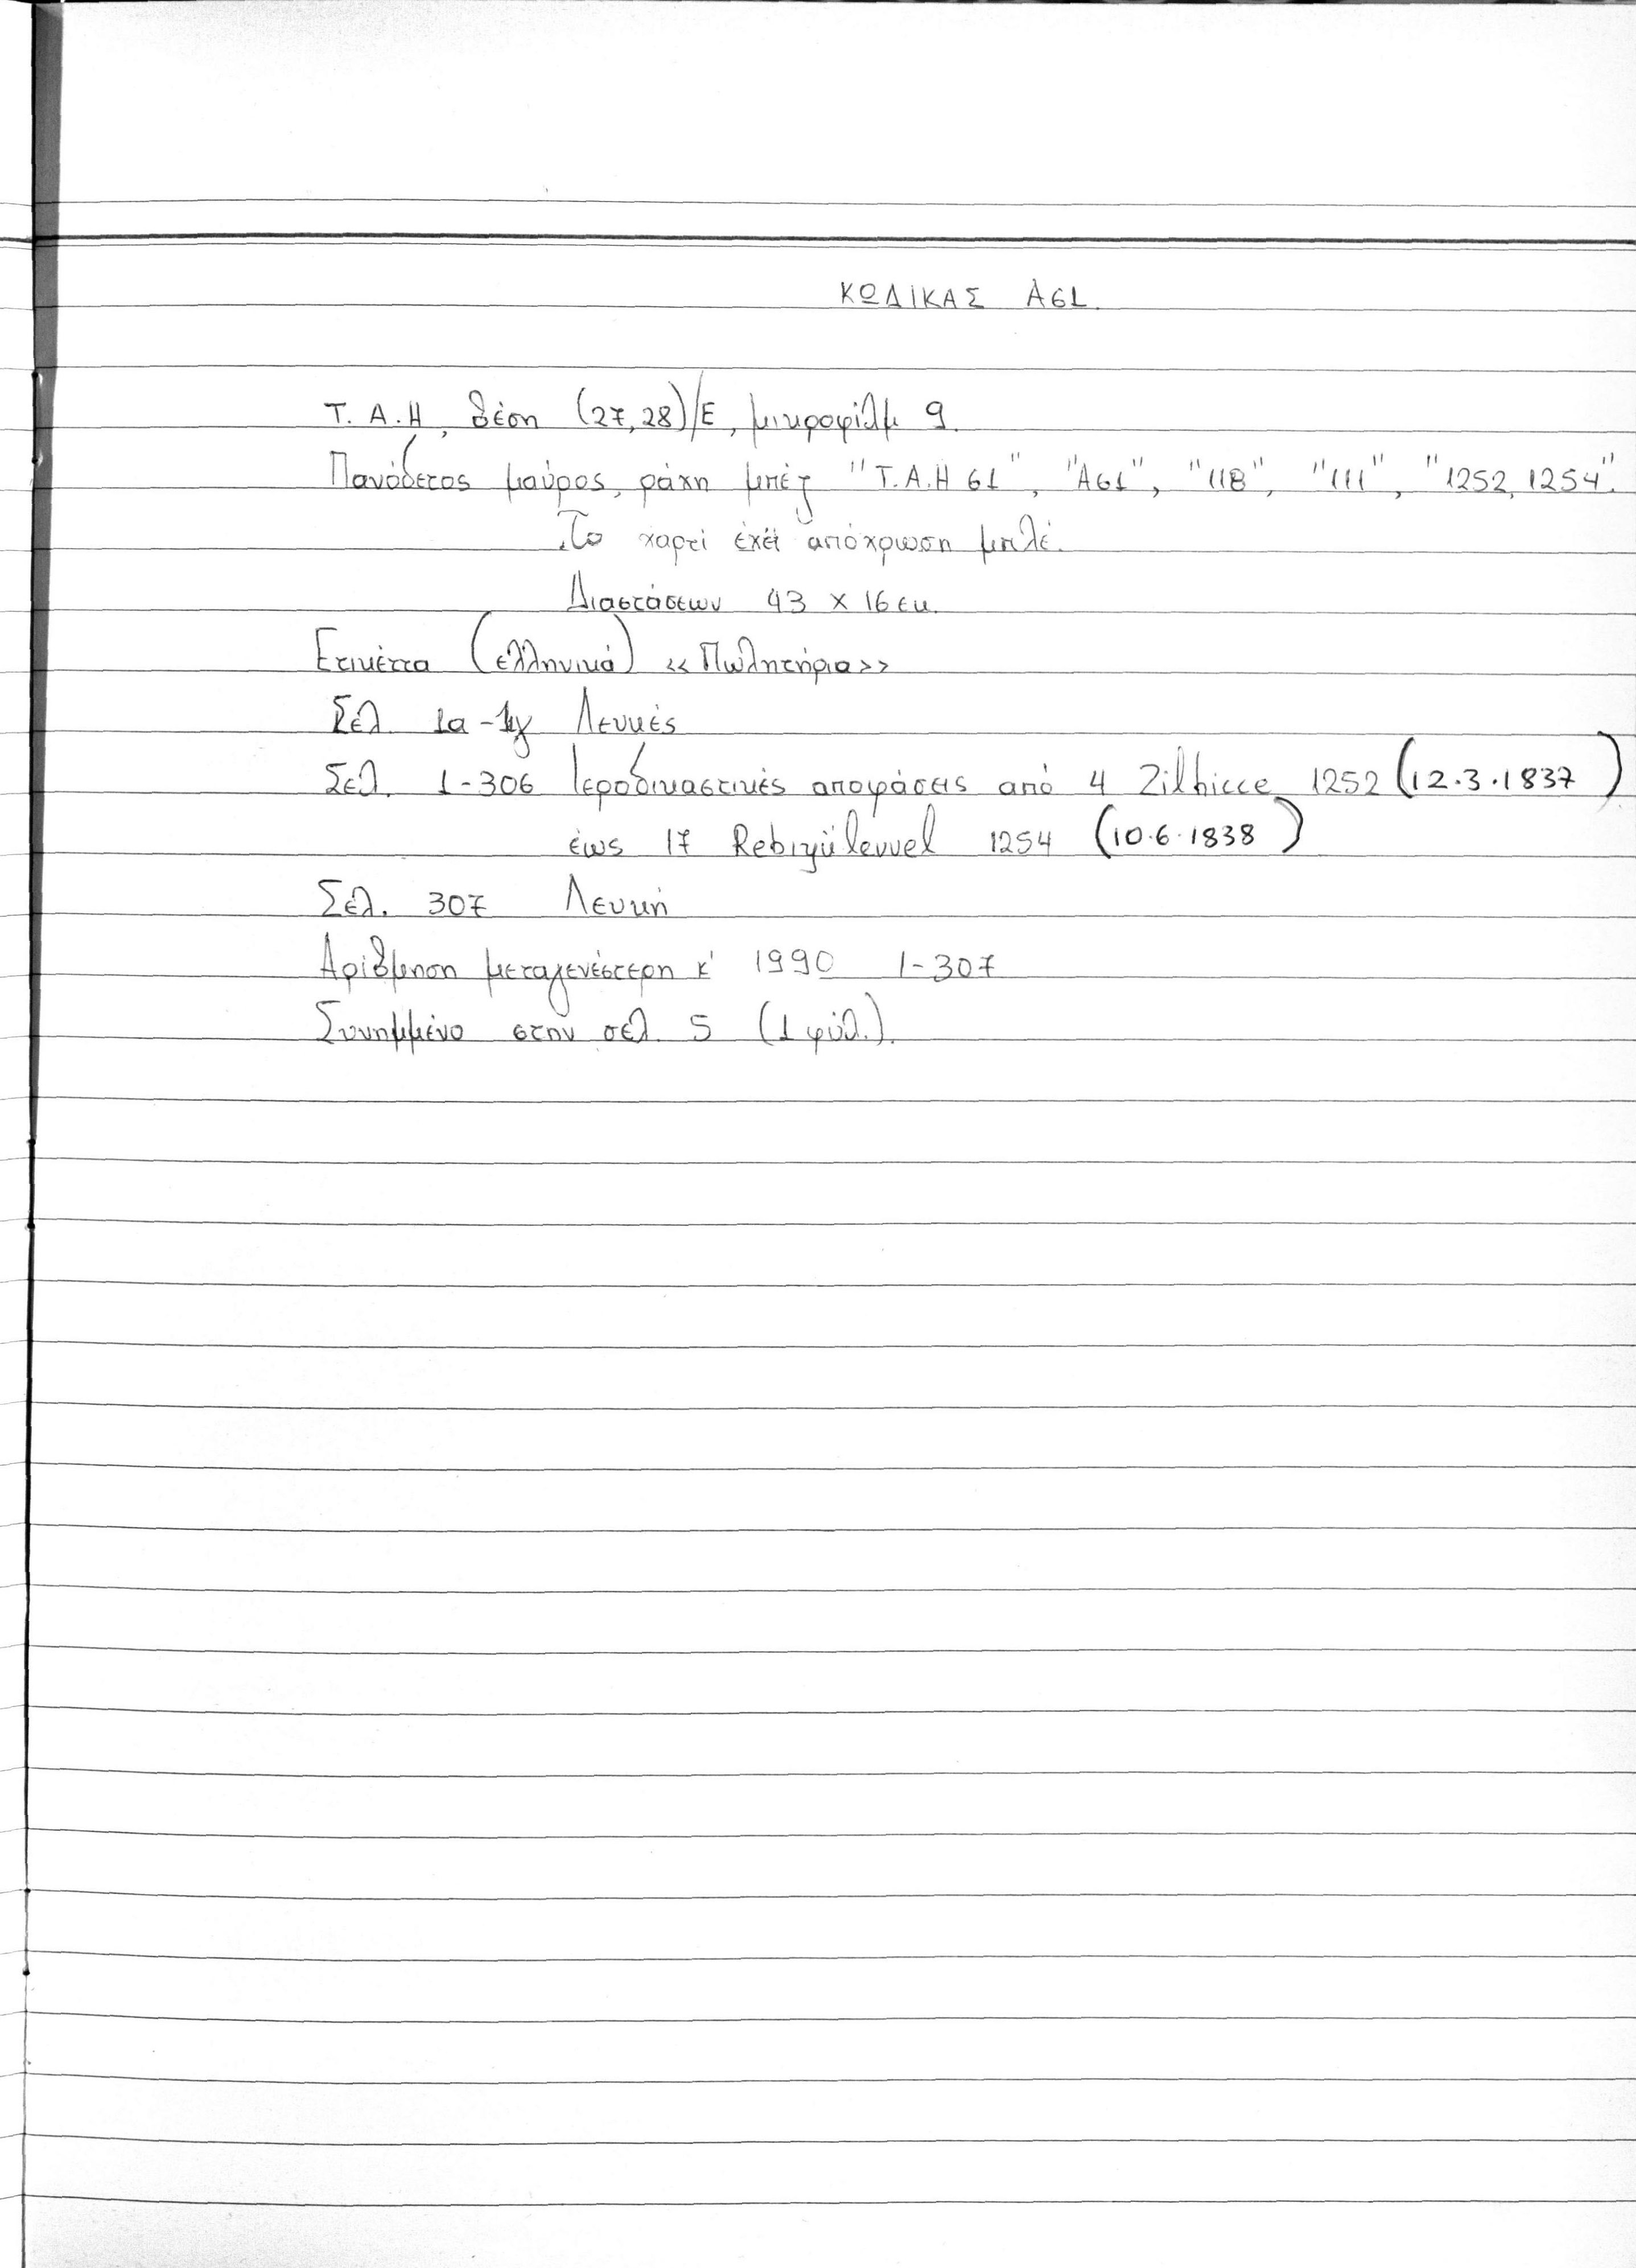 ΚΩΔΙΚΑΣ Α61.
Τ.Α.Η, θέση (27,28)/Ε, μικροφίλμ 9.
Πανόδετος μαύρος, ράχη μπέζ "Τ.Α.Η 61", "Α61", "118", "111", "1252, 1254".
Το χαρτί έχει απόχρωση μπλέ.
Διαστάσεων 43 x 16 εκ.
Ετικέττα (ελληνικά) «Πωλητήρια»
Σελ. 1α-1γ Λευκές
Σελ. 1-306 Ιεροδικαστικές αποφάσεις από 4 Zilhicce 1252 (12.3.1837)
έως 17 Rebiyülevvel 1254 (10.6.1838)
Σελ. 307 Λευκή
Αρίθμηση μεταγενέστερη κ' 1990 1-307
Συνημμένο στην σελ. 5 (1 φύλ.).